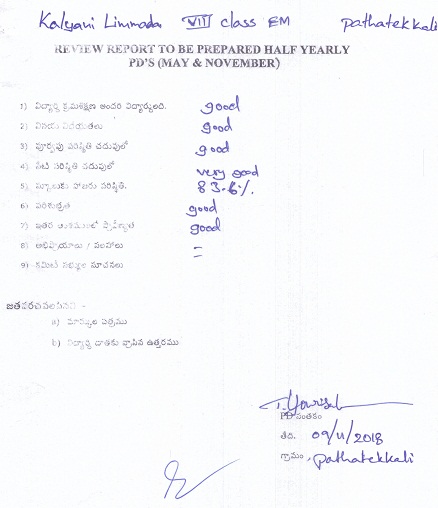 Kalyani Limmada VIII class EM pathatekkali
REVIEW REPORT TO BE PREPARED HALF YEARLY
PD'S (MAY & NOVEMBER)
1) విద్యార్థి క్రమశిక్షణ అందరి విద్యార్థులది. good
2) వినయ విధేయతలు good
3) పూర్వపు పరిస్థితి చదువులో good
4) నేటి పరిస్థితి చదువులో very good
5) స్కూలుకు హాజరు పరిస్థితి. 83.6%.
6) పరిశుభ్రత good
7) ఇతర అంశములలో ప్రావీణ్యత good
8) అభిప్రాయాలు / సలహాలు =
9) కమిటీ సభ్యుల సూచనలు
జతపరచవలసినవి :-
a) మార్కుల పత్రము
b) విద్యార్థి దాతకు వ్రాసిన ఉత్తరము
PD సంతకం
తేది. 09/11/2018
గ్రామం. pathatekkali